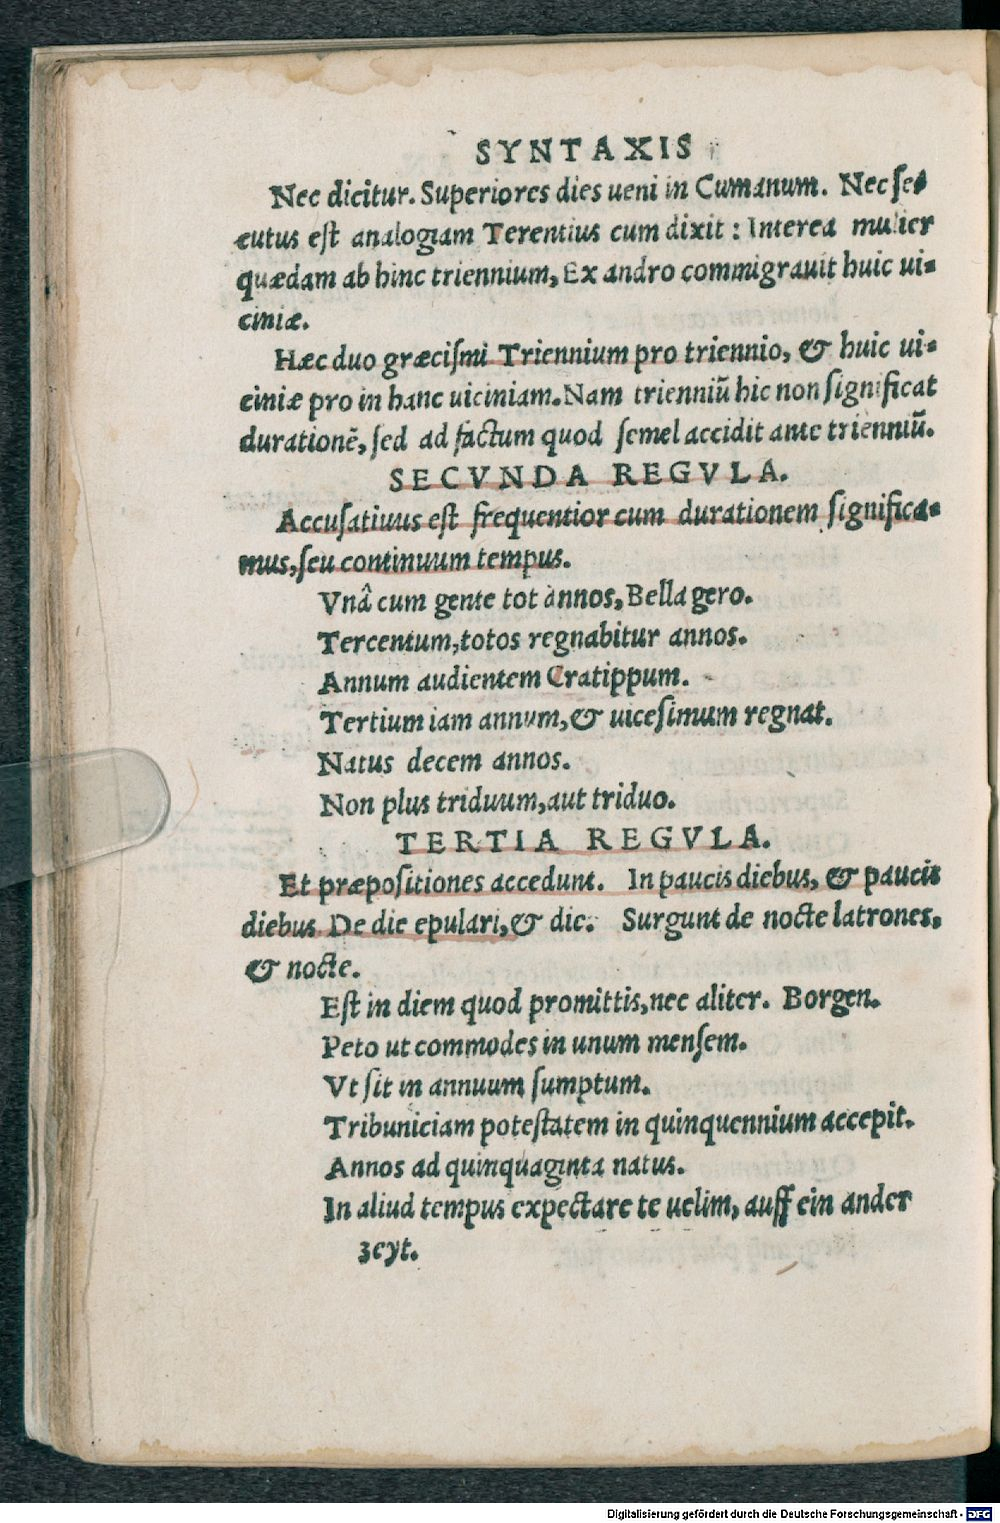 SYNTAXIS
Nec dicitur. Superiores dies ueni in Cumanum. Nec se-
cutus est analogiam Terentius cum dixit: Interea mulier
quædam ab hinc triennium, Ex andro commigrauit huic ui-
ciniæ.
Hæc duo græcismi Triennium pro triennio, & huic ui-
ciniæ pro in hanc uiciniam. Nam trienniũ hic non significat
durationẽ, sed ad factum quod semel accidit ante trienniũ.
SECVNDA REGVLA.
Accusatiuus est frequentior cum durationem significa-
mus, seu continuum tempus.
Vnâ cum gente tot annos, Bella gero.
Tercentum, totos regnabitur annos.
Annum audientem Cratippum.
Tertium iam annum, & uicesimum regnat.
Natus decem annos.
Non plus triduum, aut triduo.
TERTIA REGVLA.
Et præpositiones accedunt. In paucis diebus, & paucis
diebus. De die epulari, & die. Surgunt de nocte latrones,
& nocte.
Est in diem quod promittis, nec aliter. Borgen.
Peto ut commodes in unum mensem.
Vt sit in annuum sumptum.
Tribuniciam potestatem in quinquennium accepit.
Annos ad quinquaginta natus.
In aliud tempus expectare te uelim, auff ein ander
zeyt.
Digitalisierung gefördert durch die Deutsche Forschungsgemeinschaft - DFG